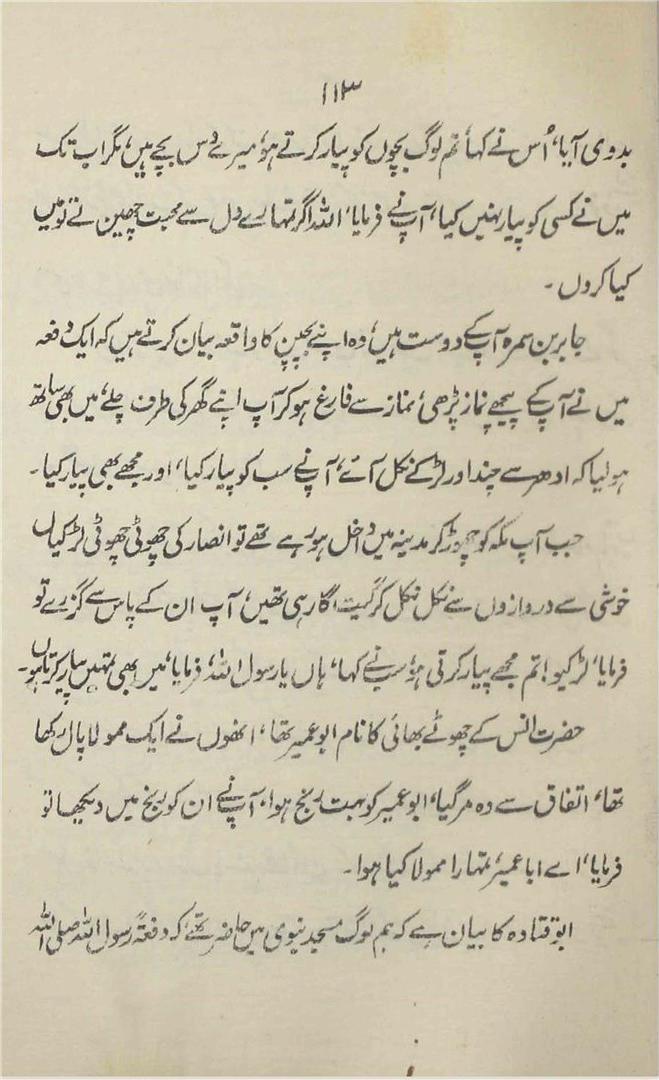 ۱۱۳
بدوی آیا، اُس نے کہا، تم لوگ بچوں کو پیار کرتے ہو، میرے دس بچے ہیں، مگر اب تک
میں نے کسی کو پیار نہیں کیا، آپ نے فرمایا، اللہ اگر تمہارے دل سے محبت چھین لے تو میں
کیا کروں ۔
جابر بن سمرہ آپ کے دوست ہیں، وہ اپنے بچپن کا واقعہ بیان کرتے ہیں کہ ایک دفعہ
میں نے آپ کے پیچھے نماز پڑھی، نماز سے فارغ ہو کر آپ اپنے گھر کی طرف چلے، میں بھی ساتھ
ہو لیا کہ ادھر سے چند اور لڑکے نکل آئے، آپ نے سب کو پیار کیا، اور مجھے بھی پیار کیا۔
جب آپ مکہ کو چھوڑ کر مدینہ میں داخل ہو رہے تھے تو انصار کی چھوٹی چھوٹی لڑکیاں
خوشی سے دروازوں سے نکل نکل کر گیت گا رہی تھیں، آپ ان کے پاس سے گزرے تو
فرمایا، لڑکیو! تم مجھے پیار کرتی ہو، سب نے کہا، ہاں یا رسول اللہ، فرمایا، میں بھی تمہیں پیار کرتا ہوں۔
حضرت انس کے چھوٹے بھائی کا نام ابو عمیر تھا، انھوں نے ایک ممولا پال رکھا
تھا، اتفاق سے وہ مر گیا، ابو عمیر کو بہت رنج ہوا، آپ نے ان کو رنج میں دیکھا تو
فرمایا، اے ابا عمیر، تمہارا ممولا کیا ہوا۔
ابو قتادہ کا بیان ہے کہ ہم لوگ مسجد نبوی میں حاضر تھے، کہ دفعۃً رسول اللہ صلی اللہ